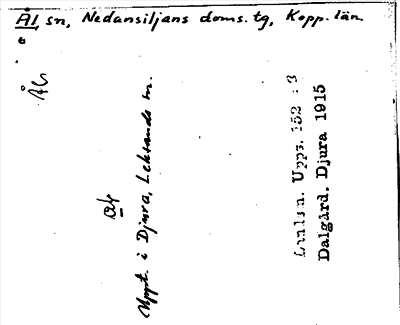 Ål sn, Nedansiljans doms. tg, Kopp. län
Ål
ål
Uppt. i Djura, Leksands sn.
Landsm. Upps. 152 : 3
Dalgård. Djura 1915